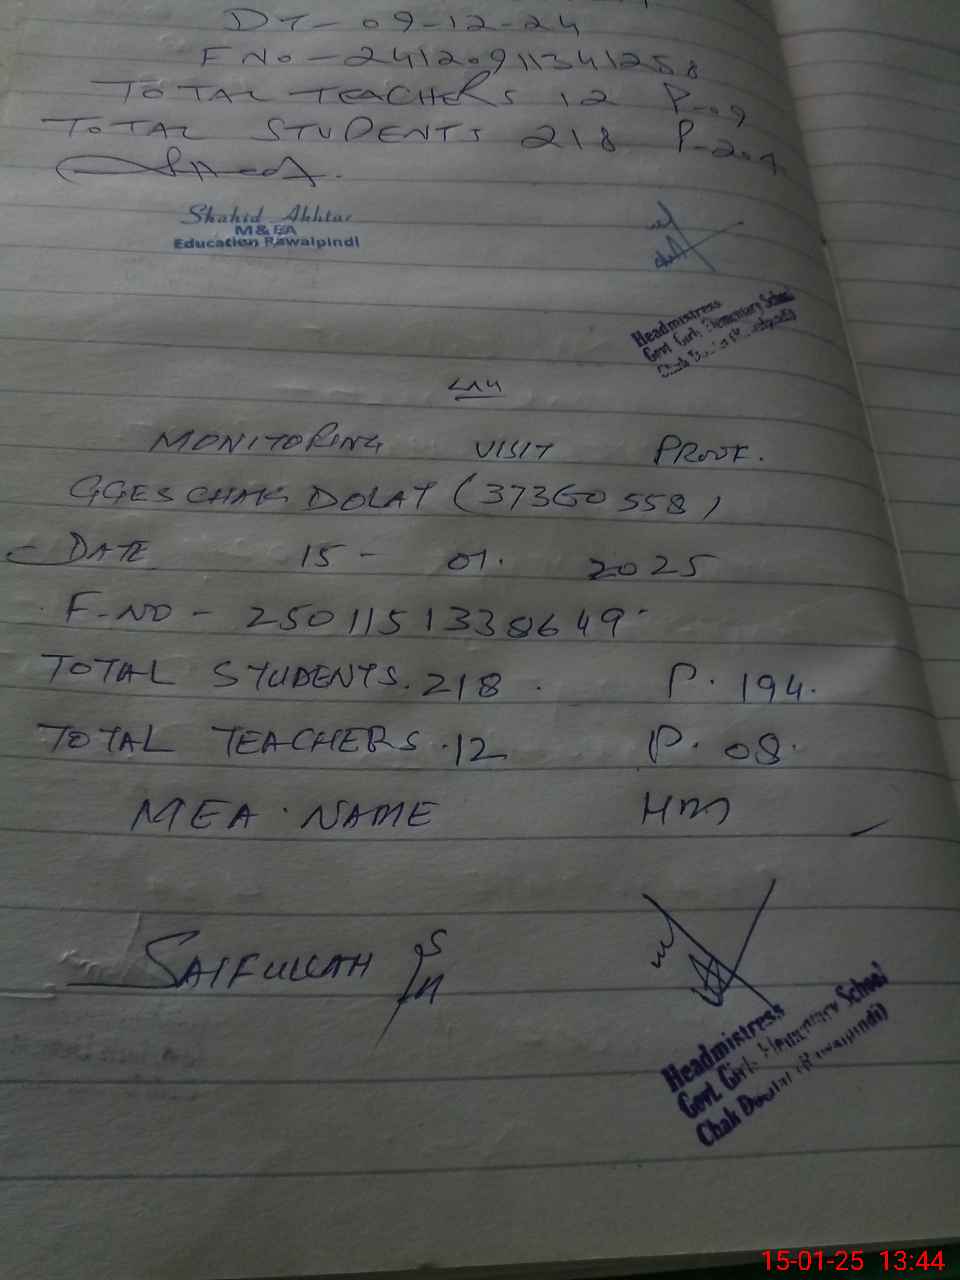 DT- 09-12-24
F NO - 24120911341258
TOTAL TEACHERS 12 P-09
TOTAL STUDENTS 218 P-204
Shahid Akhtar
M&EA
Education Rawalpindi
Headmistress
Govt Girls Elementary School
Chak
MONITORING VISIT PROOF.
GGES CHAK DOLAT (37360558)
DATE 15 - 01. 2025
F-NO - 2501151338649
TOTAL STUDENTS. 218 P. 194.
TOTAL TEACHERS. 12 P. 08.
MEA. NAME HM
SAIFULLAH
Headmistress
Govt. Girls Elementary School
Chak Doulat (Rawalpindi)
15-01-25 13:44